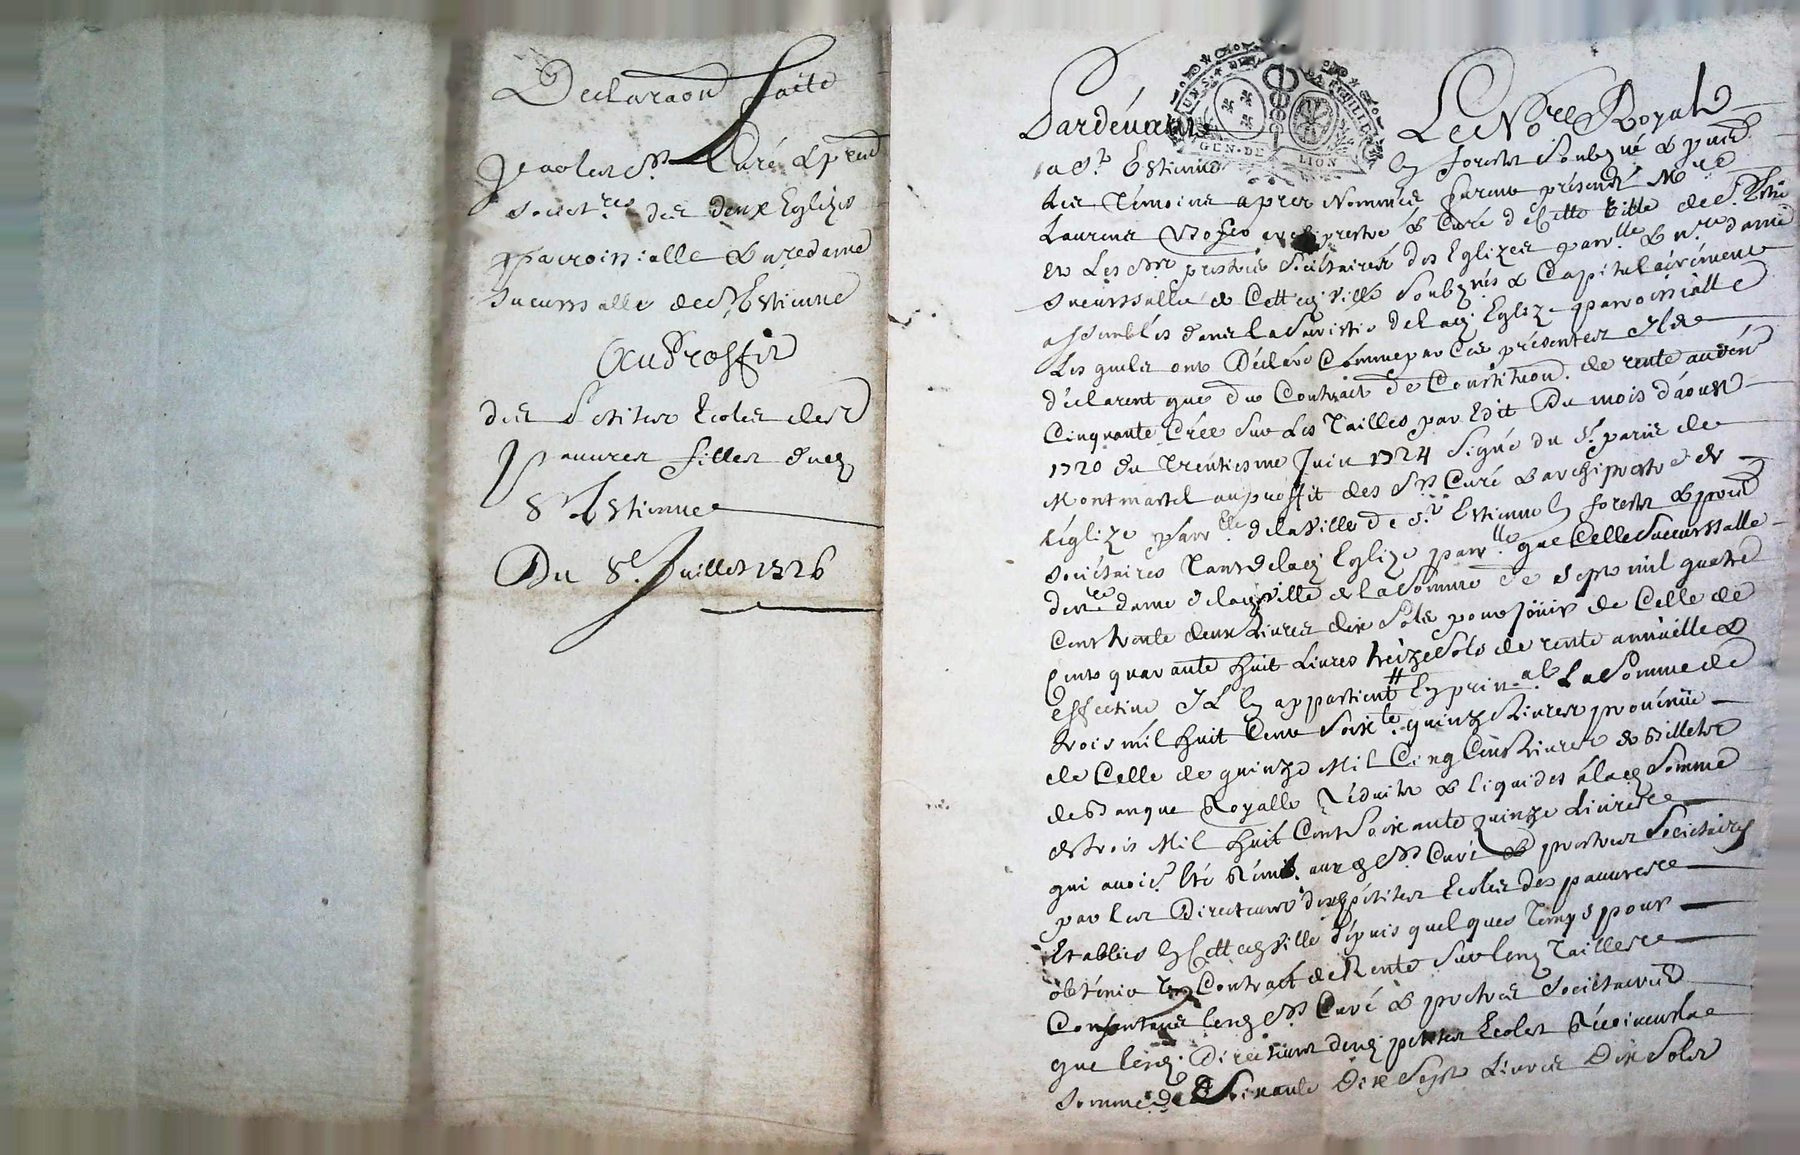 Declaraon faite
par les Srs Curé & prend
societres des deux Eglizes
parroissialle & nredame
sucurssalle de St Estienne
Au Proffit
des Petites Ecoles des
pauvres filles dudt
St Estienne
Du 8e Juillet 1726
GEN. DE LION
Pardevant Le Nore Royal
a St Estienne en forests soubzné & pnts
les Témoins apres Nommés furent présents Mre
Laurens archiprestre & Curé de Cette Ville de St Estie
et Les Srs prestres sociétaires des Eglizes parrlle & nre dame
sucurssalle de Cette ville soubznés & Capitulairement
assemblés dans la sacristie de la Eglize parroissialle
Lesquels ont Déclaré Comme par Ces présentes Ils
déclarent que du Contrait de Constituon de rente au den
Cinquante Créé sur Les Tailles par Edit Du mois d'aoust
1720 du Trentiesme Juin 1724 signé du Sr paris de
Montmartel au proffit des Srs Curé & archiprestre de
L'églize parrlle de la Ville de St Estienne en forests & pred
sociétaires Tant de la Eglize parrlle que Celle sucurssalle
de nre dame de la ville de la somme de sept mil quatre
Cent trente deux Livres dix sols pour Joüir de Celle de
Cent quarante huit Livres treize sols de rente annüelle &
effective Il en appartient En prinal La somme de
trois mil huit Cent soixte quinze Livres provenüe
de Celle de quinze Mil Cinq Cent Livres de Billets
de Banque Royalle Réduits & liquidés à la somme
de trois Mil huit Cent soixante quinze Livres
qui avoit été Remis aux Srs Curé & prestres sociétaires
par les Directeurs des petites Ecoles des pauvres
Etablies en Cette ville dépuis quelques Temps pour
obténir un Contract de Rente sur les Tailles
Consentans Srs Curé & prestres sociétaires
que les Directeurs des petites Ecoles Récoivent la
somme de soixante Dix Sept Livres Dix sols